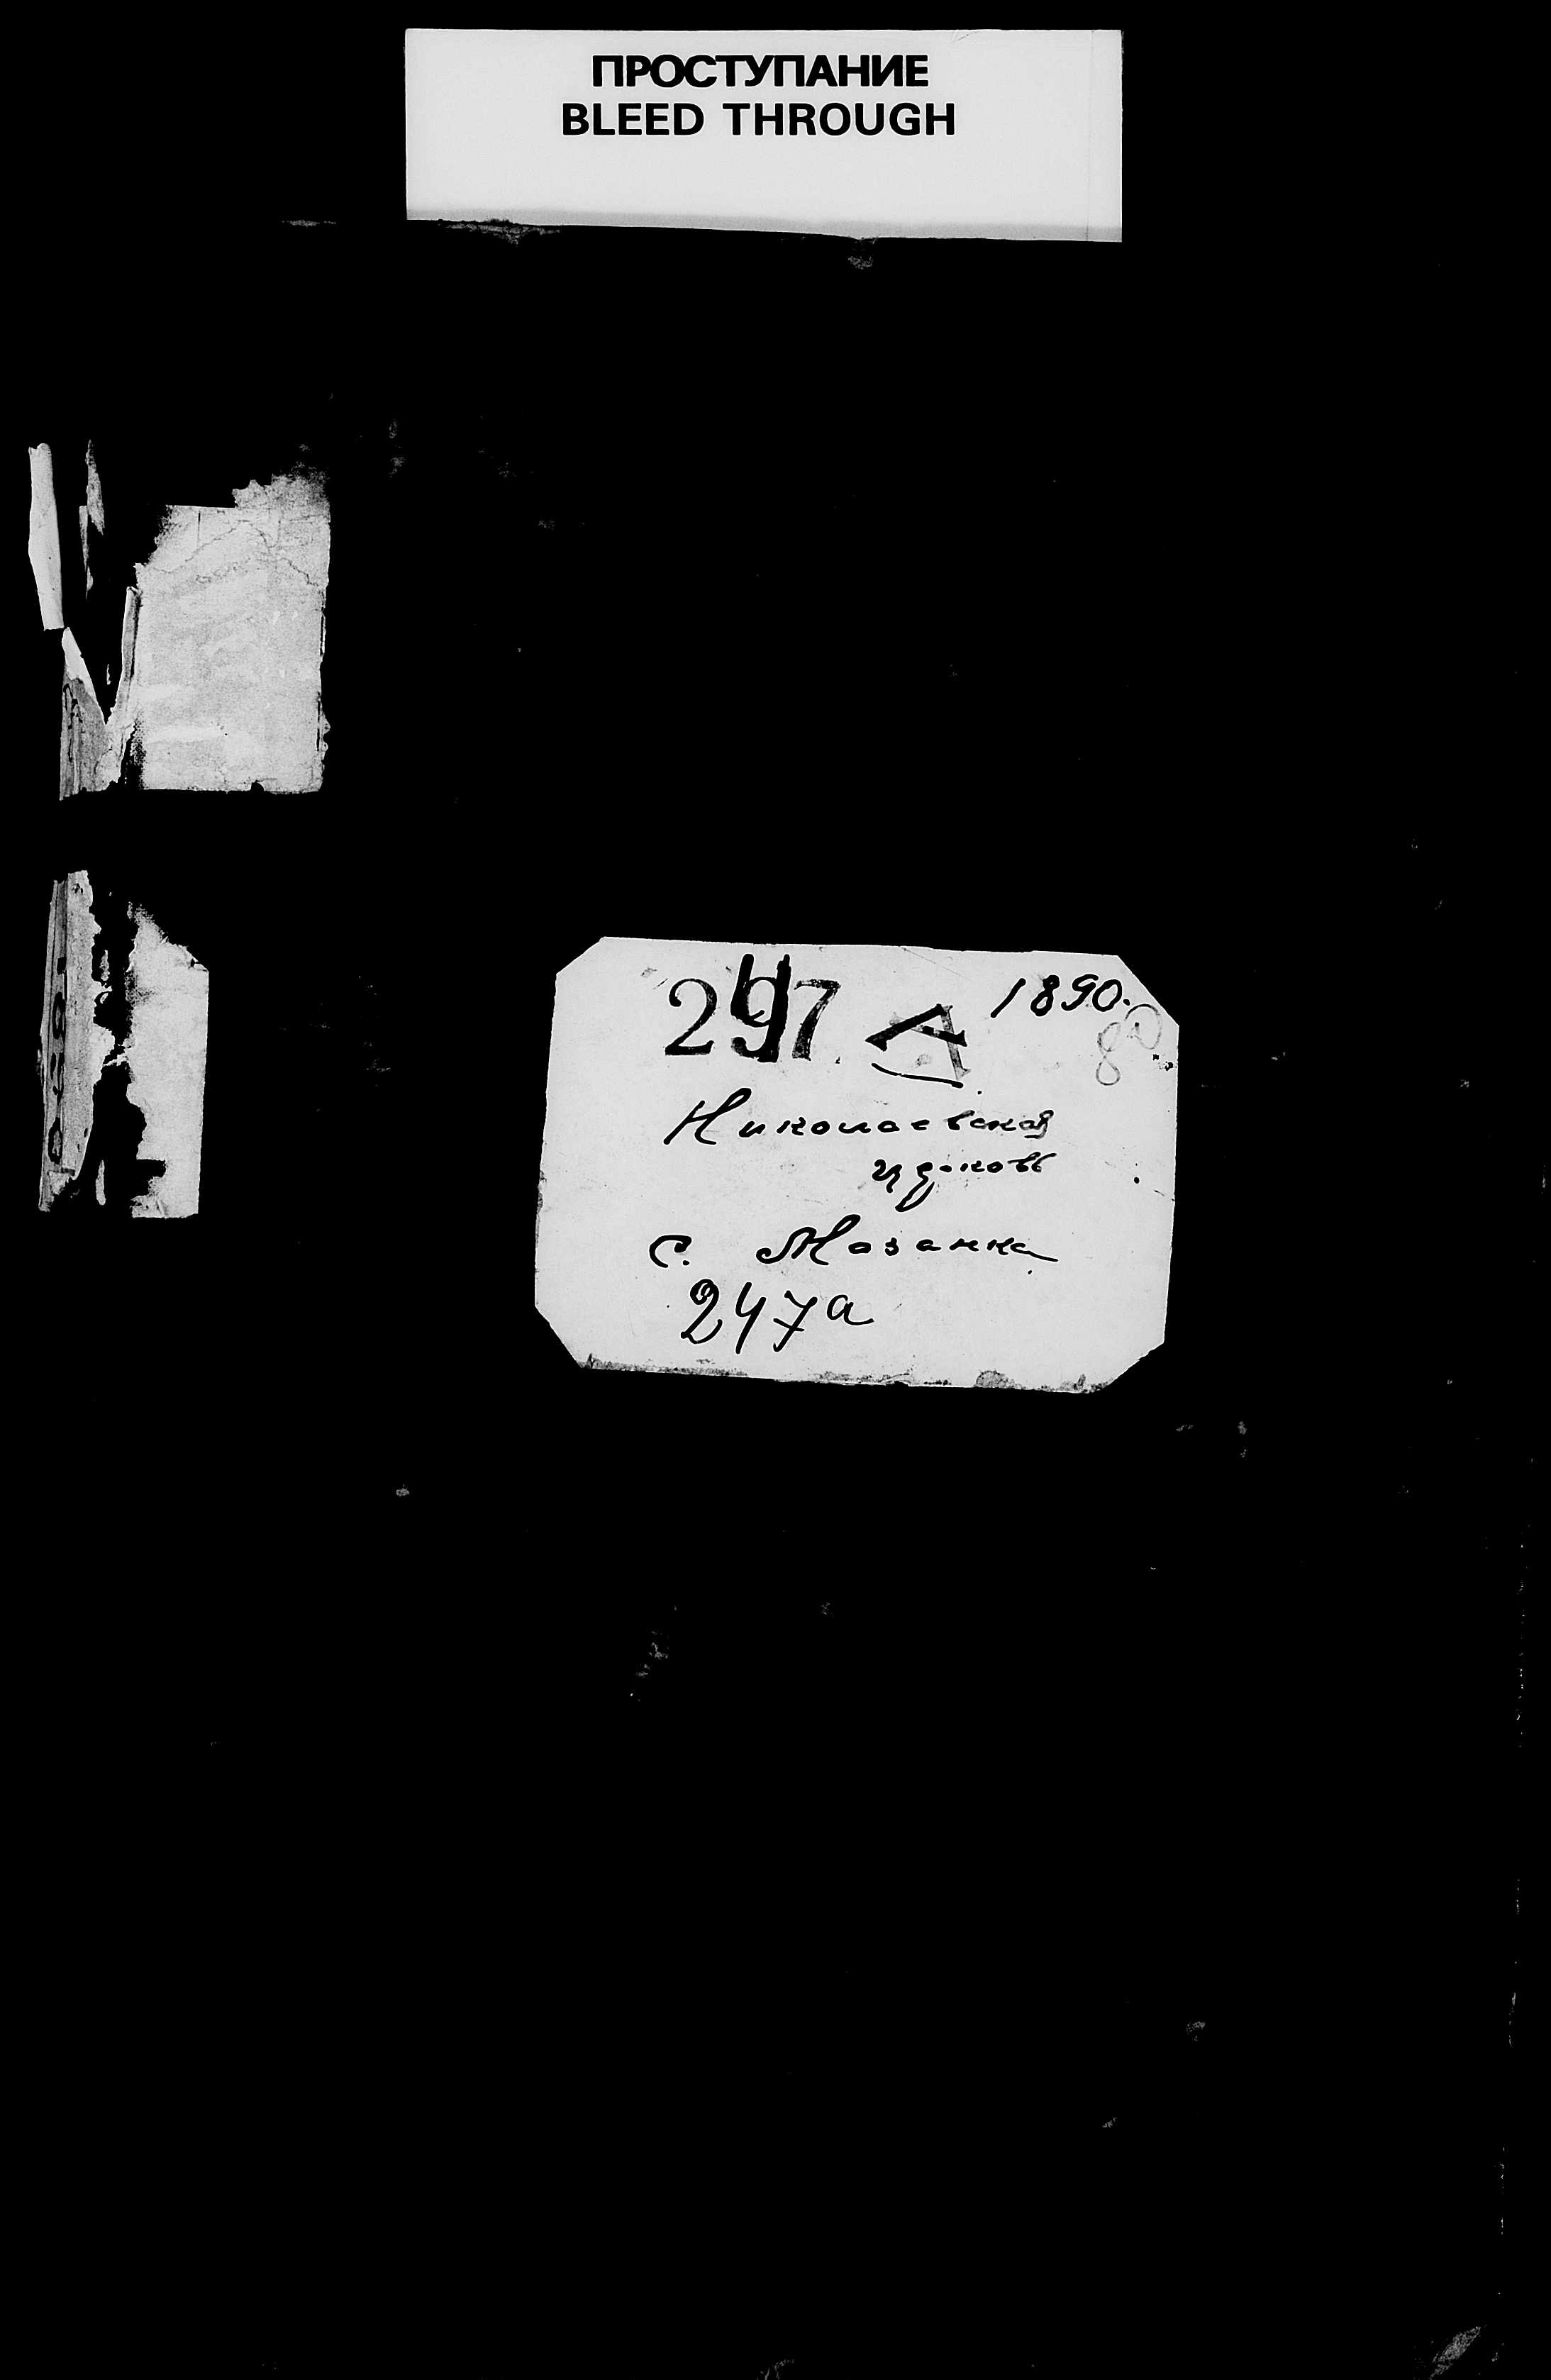 ПРОСТУПАНИЕ
BLEED THROUGH
247 А 1890.
80
Николаевская
церковь
с. Мозанка
247а